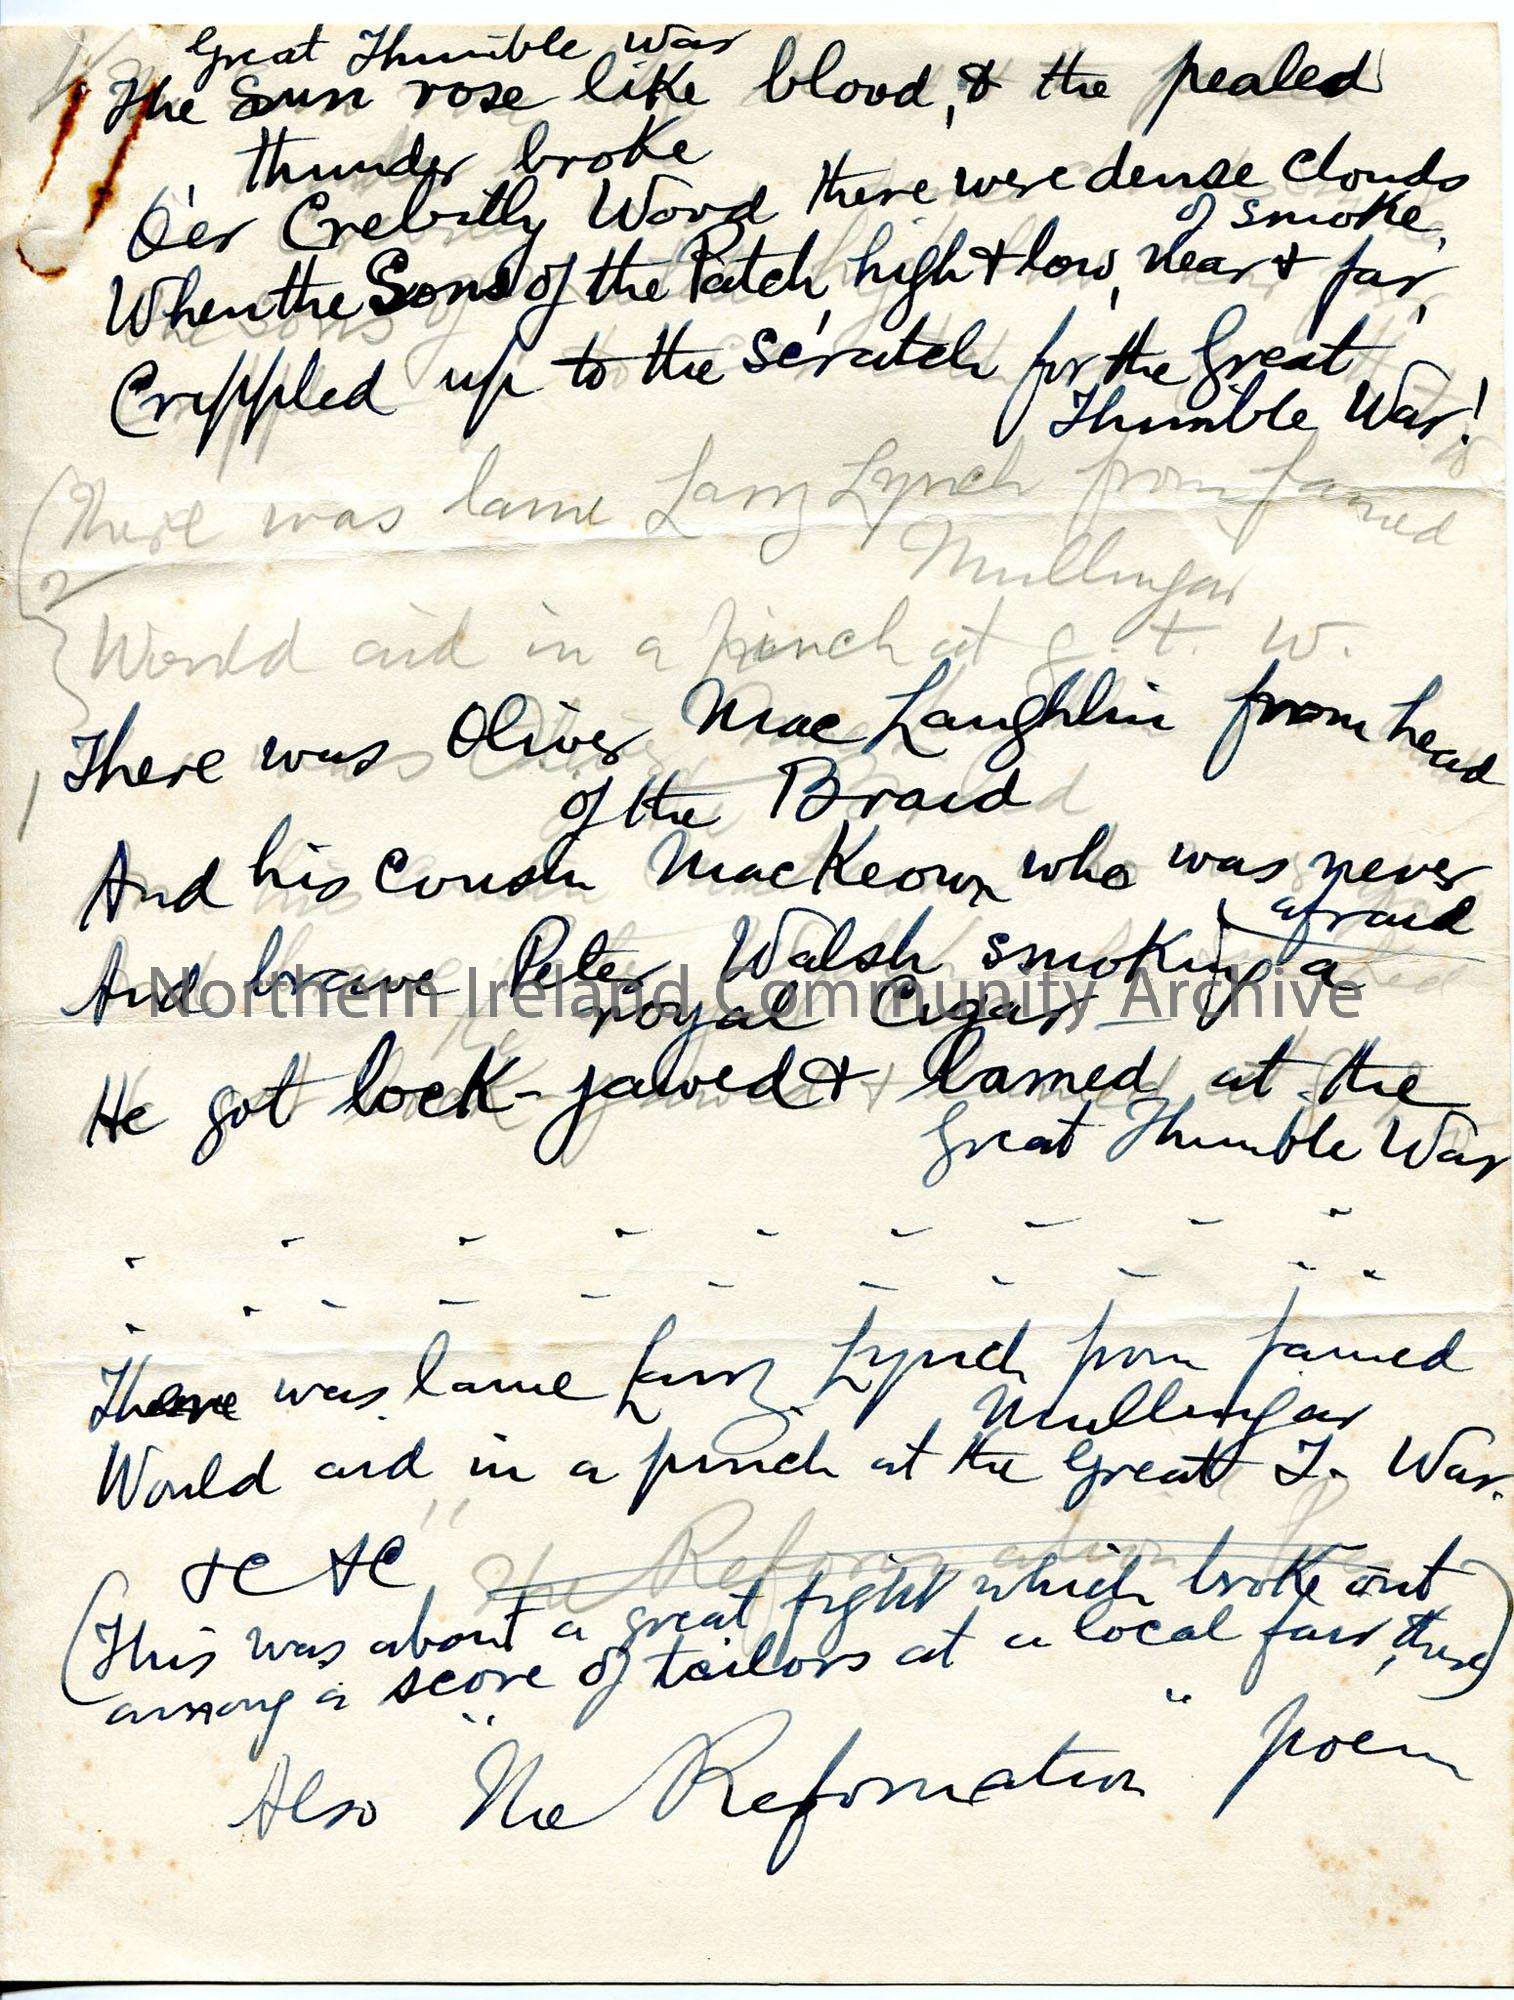 Great Thumble War
The Sun rose like blood, & the pealed
thunder broke
O'er Crebilly Wood there were dense clouds
of smoke,
When the Sons of the Patch, high & low, near & far,
Crippled up to the scratch for the Great
Thumble War!
There was lame Larry Lynch from famed
Mullingar
Would aid in a pinch at g. t. W.
There was Oliver MacLaughlin from head
of the Braid
And his cousin MacKeown who was never
afraid
And brave Peter Walsh smoking a
royal Cigar —
He got lock-jawed & lamed at the
Great Thumble War
There was lame Larry Lynch from famed
Mullingar
Would aid in a pinch at the Great T. War.
&c &c
"The Reformation"
(This was about a great fight which broke out
among a score of tailors at a local fair, there)
Also "The Reformation" poem
Northern Ireland Community Archive